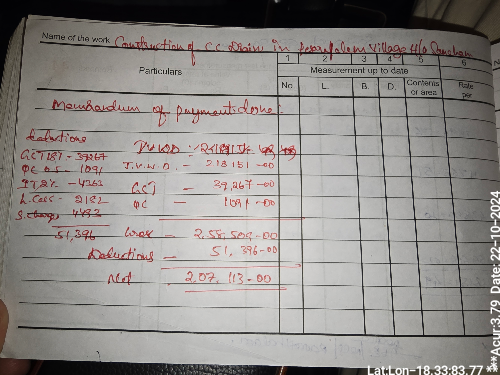 Name of the work Construction of CC Drain in Village H/o
Particulars
Measurement up to date
1 2 3 4 5 6
No. L. B. D. Contents or area Rate per
Memorandum of payment done:
Deductions
GST 18% - 39267
QC 0.5 - 1091
T.V.W.D. - 218151-00
IT 2% - 4363
GST - 39,267-00
L. Cess - 2182
QC - 1091-00
S. charges 4493
51,396
Gross - 2,58,509-00
Deductions - 51,396-00
Net 2,07,113-00
Lat:Lon-18.33:83.77
***Acur:3.79 Date: 22-10-2024